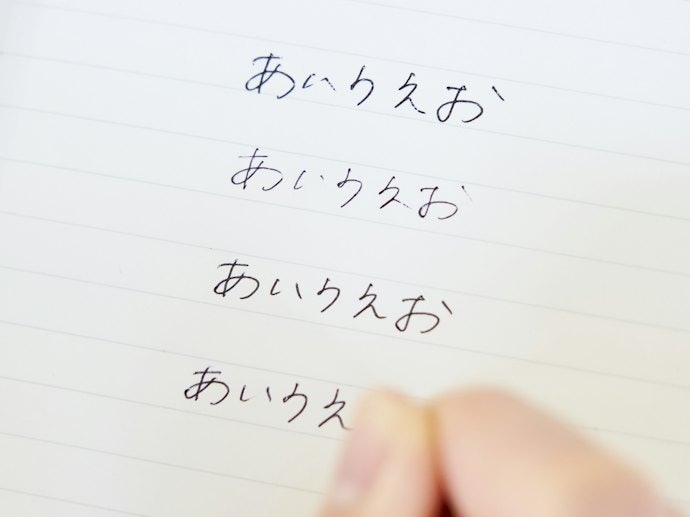 あいうえお
あいうえお
あいうえお
あいうえ